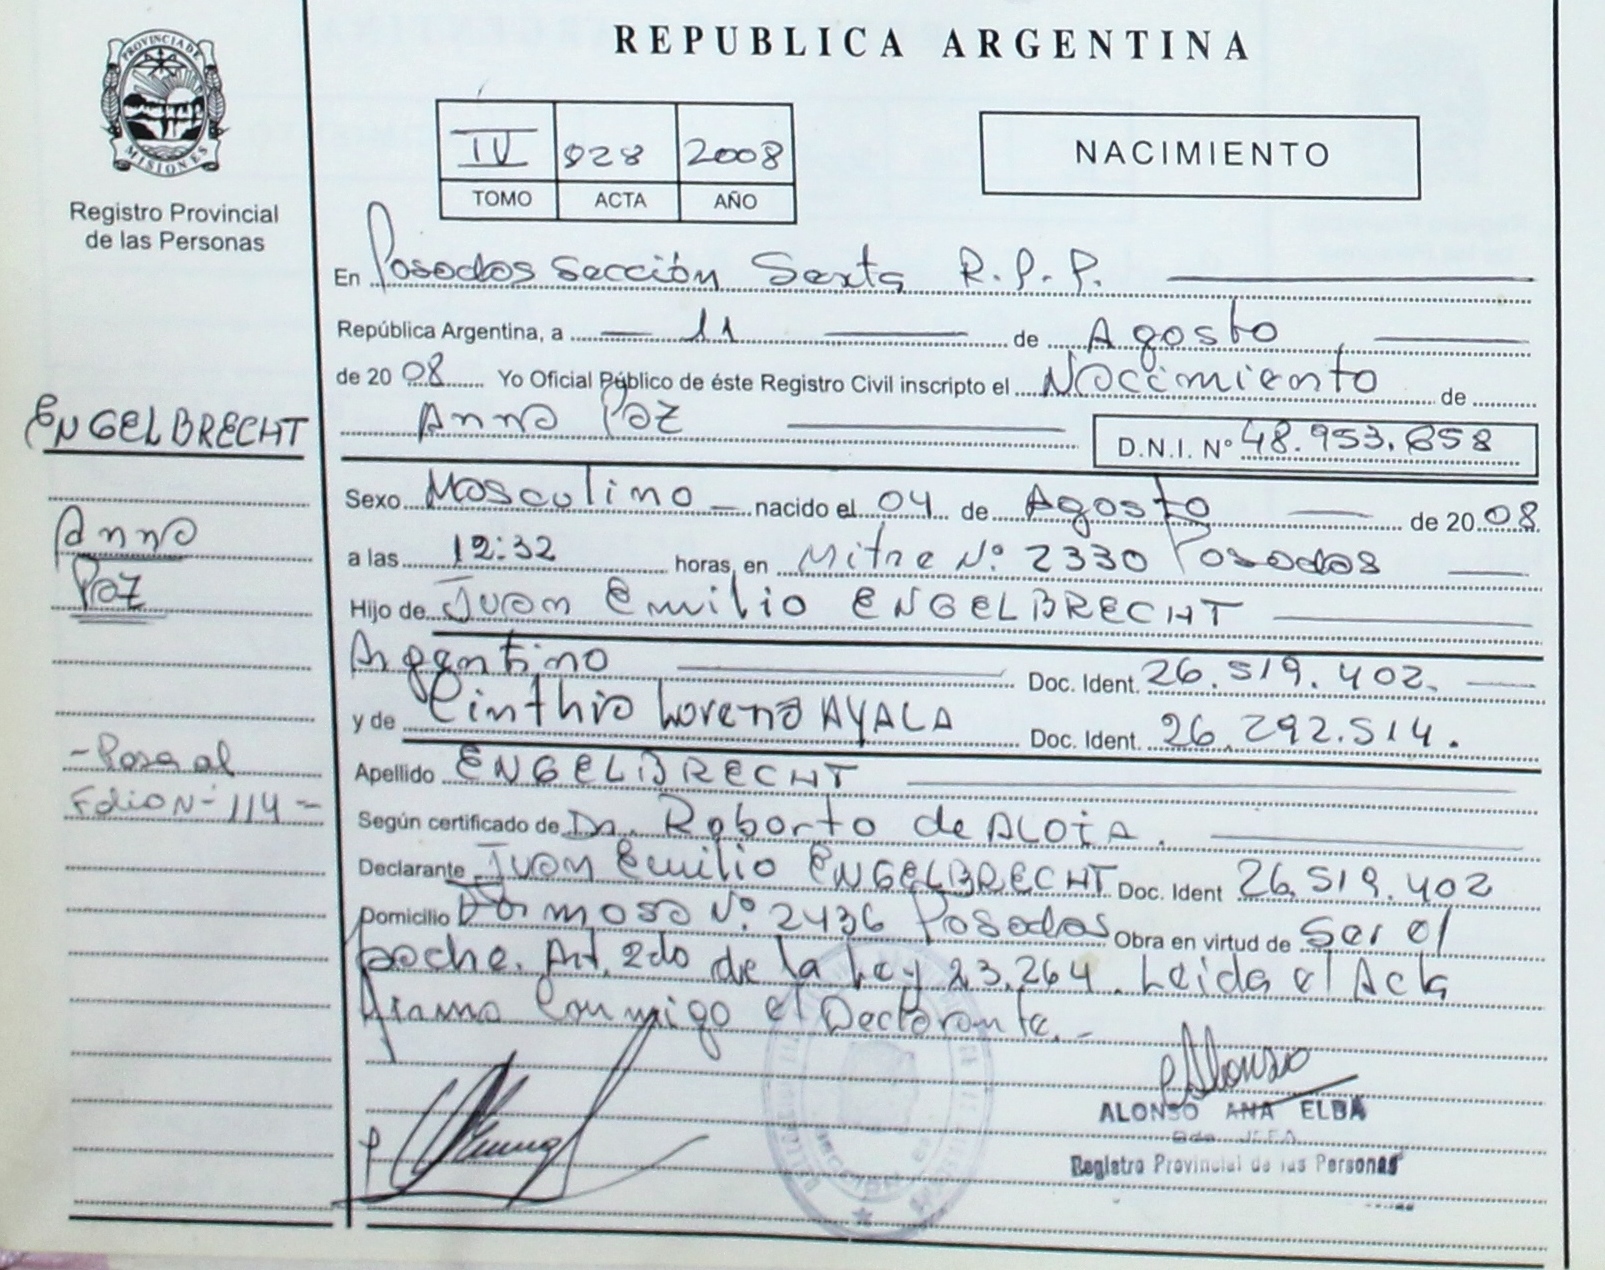 PROVINCIA DE
MISIONES
Registro Provincial
de las Personas
REPUBLICA ARGENTINA
IV 928 2008
TOMO ACTA AÑO
NACIMIENTO
En Posadas Sección Sexta R.P.P.
República Argentina, a 11 de Agosto
de 2008 Yo Oficial Público de éste Registro Civil inscripto el Nacimiento de
Anna Paz
D.N.I. Nº 48.953.658
Sexo Masculino nacido el 04 de Agosto de 2008
a las 12:32 horas, en Mitre Nº 2330 Posadas
Hijo de Juan Emilio ENGELBRECHT
Argentino Doc. Ident. 26.519.402.
y de Cinthia Lorena AYALA Doc. Ident. 26.292.514.
Apellido ENGELBRECHT
Según certificado de Dr. Roberto de ALOIA.
Declarante Juan Emilio ENGELBRECHT Doc. Ident 26.519.402
Domicilio Formosa Nº 2436 Posadas Obra en virtud de Ser el
padre. Art. 2do de la Ley 23.264. Leida el Acta
firma Conmigo el Declarante.-
ENGELBRECHT
Anna
Paz
- Pasa al
Folio N- 114 -
Alonso
ALONSO ANA ELBA
Registro Provincial de las Personas